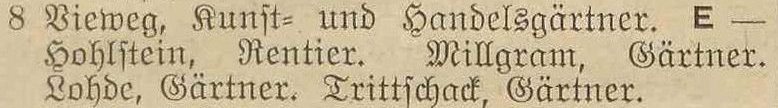 8 Vieweg, Kunst= und Handelsgärtner. E —
Hohlstein, Rentier. Millgram, Gärtner.
Lohde, Gärtner. Trittschack, Gärtner.